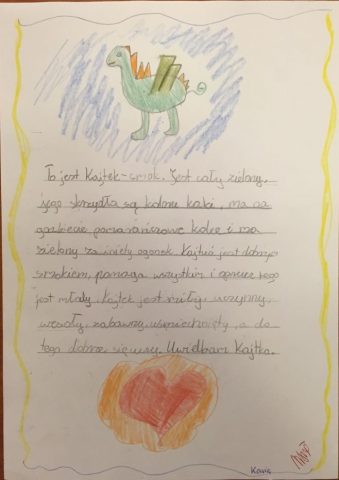 To jest Kajtek-smok. Jest cały zielony,
jego skrzydła są koloru kaki, ma na
grzbiecie pomarańczowe kolce i ma
zielony zawinięty ogonek. Kajtek jest dobrym
smokiem, pomaga wszystkim i oprócz tego
jest młody. Kajtek jest miły, uczynny,
wesoły, zabawny, uśmiechnięty, a do
tego dobrze się uczy. Uwielbiam Kajtka.